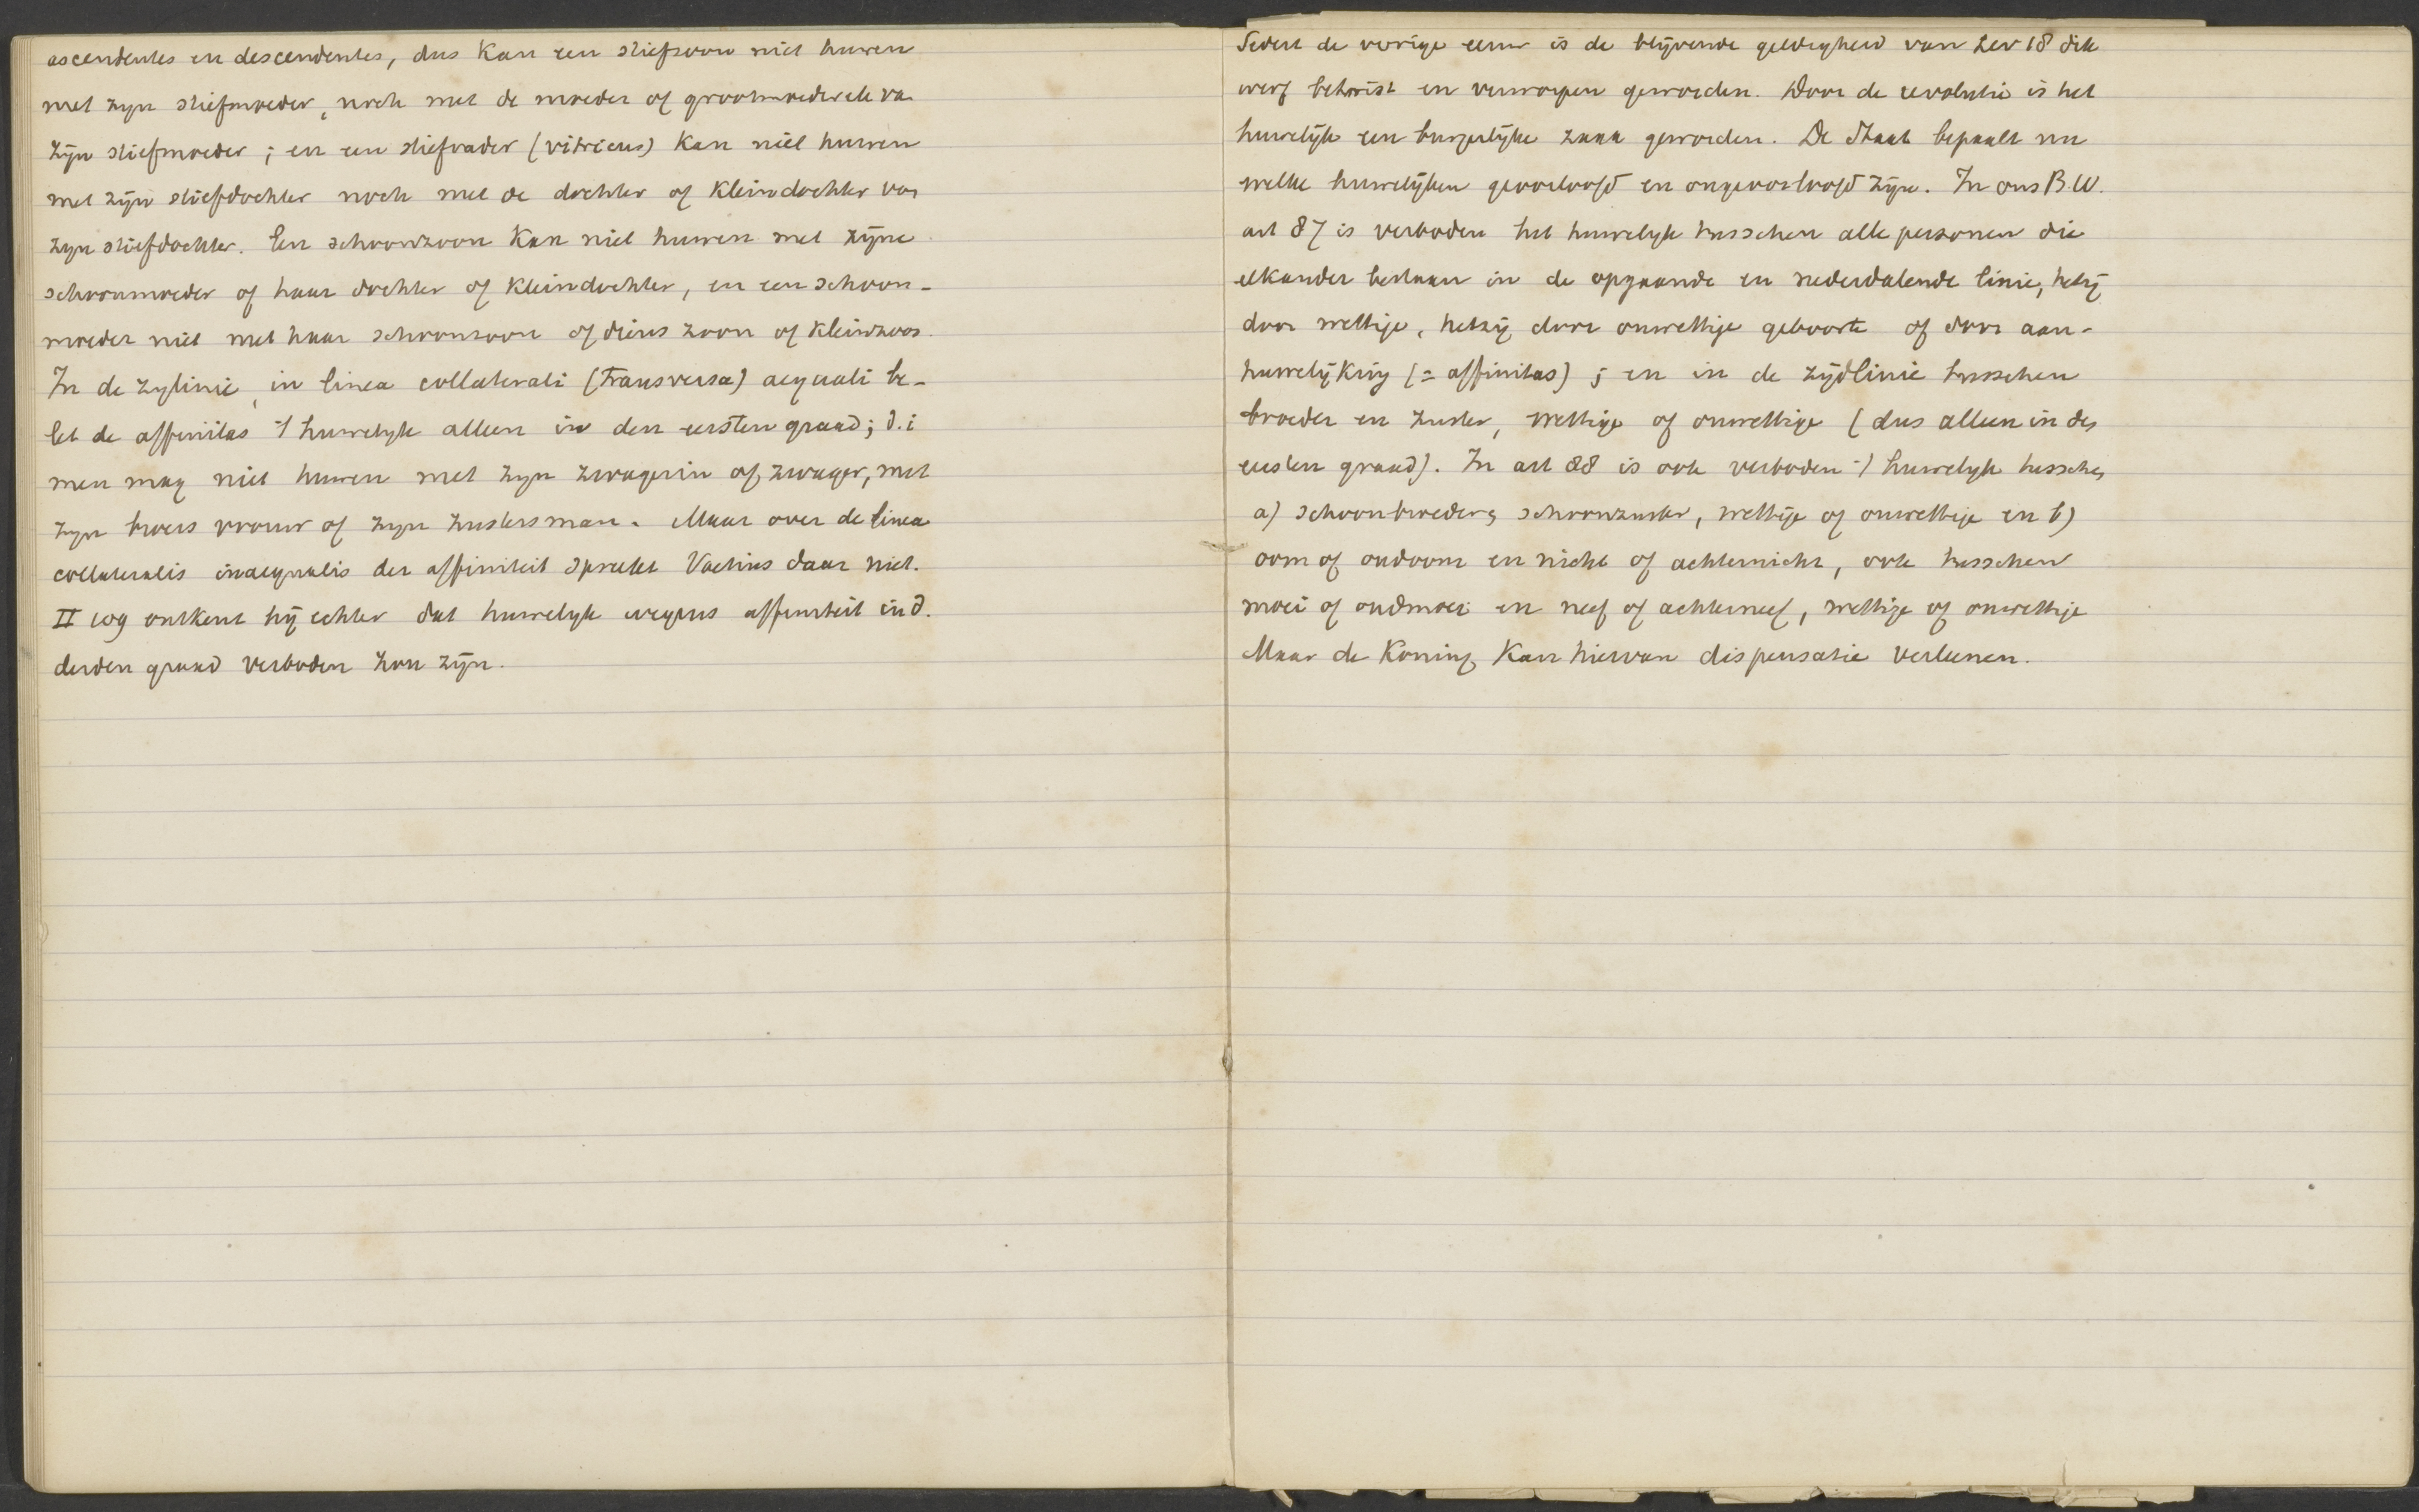 ascendentes en descendentes, dus kan een stiefzoon niet huwen
met zyn stiefmoeder, noch met de moeder of grootmoeder etc va
zijn stiefmoeder; en een stiefvader (vitricus) kan niet huwen
met zijn stiefdochter noch met de dochter of kleindochter van
zyn stiefdochter. Een schoonzoon kan niet huwen met zijne
schoonmoeder of haar dochter of kleindochter, en een schoon-
moeder niet met haar schoonzoon of diens zoon of kleinzoon.
In de zylinie, in linea collaterali (transversa) aequali be-
let de affinitas 't huwelyk alleen in den eersten graad; d.i
men mag niet huwen met zyn zwagerin of zwager, met
zyn broers vrouw of zyn zusters man. Maar over de linea
collateralis inaequalis der affiniteit spreekt Voetius daar niet.
II 109 ontkent hij echter dat huwelyk wegens affiniteit in d.
derden graad verboden zou zijn.
Sedert de vorige eeuw is de blijvende geldigheid van Lev 18 dik
werf betwist en verworpen geworden. Door de revolutie is het
huwelijk een burgerlijke zaak geworden. De Staat bepaalt nu
welke huwelijken geoorloofd en ongeoorloofd zijn. In ons B.W.
art 87 is verboden het huwelyk tusschen alle personen die
elkander bestaan in de opgaande en nederdalende linie, hetzij
door wettige, hetzij door onwettige geboorte of door aan-
huwelijking (= affinitas); en in de zijdlinie tusschen
broeder en zuster, wettige of onwettige (dus alleen in den
eersten graad). In art 88 is ook verboden 't huwelyk tusschen
a) schoonbroeder en schoonzuster, wettige of onwettige en b)
oom of oudoom en nicht of achternicht, ook tusschen
moei of oudmoei en neef of achterneef, wettige of onwettige
Maar de Koning kan hiervan dispensatie verleenen.